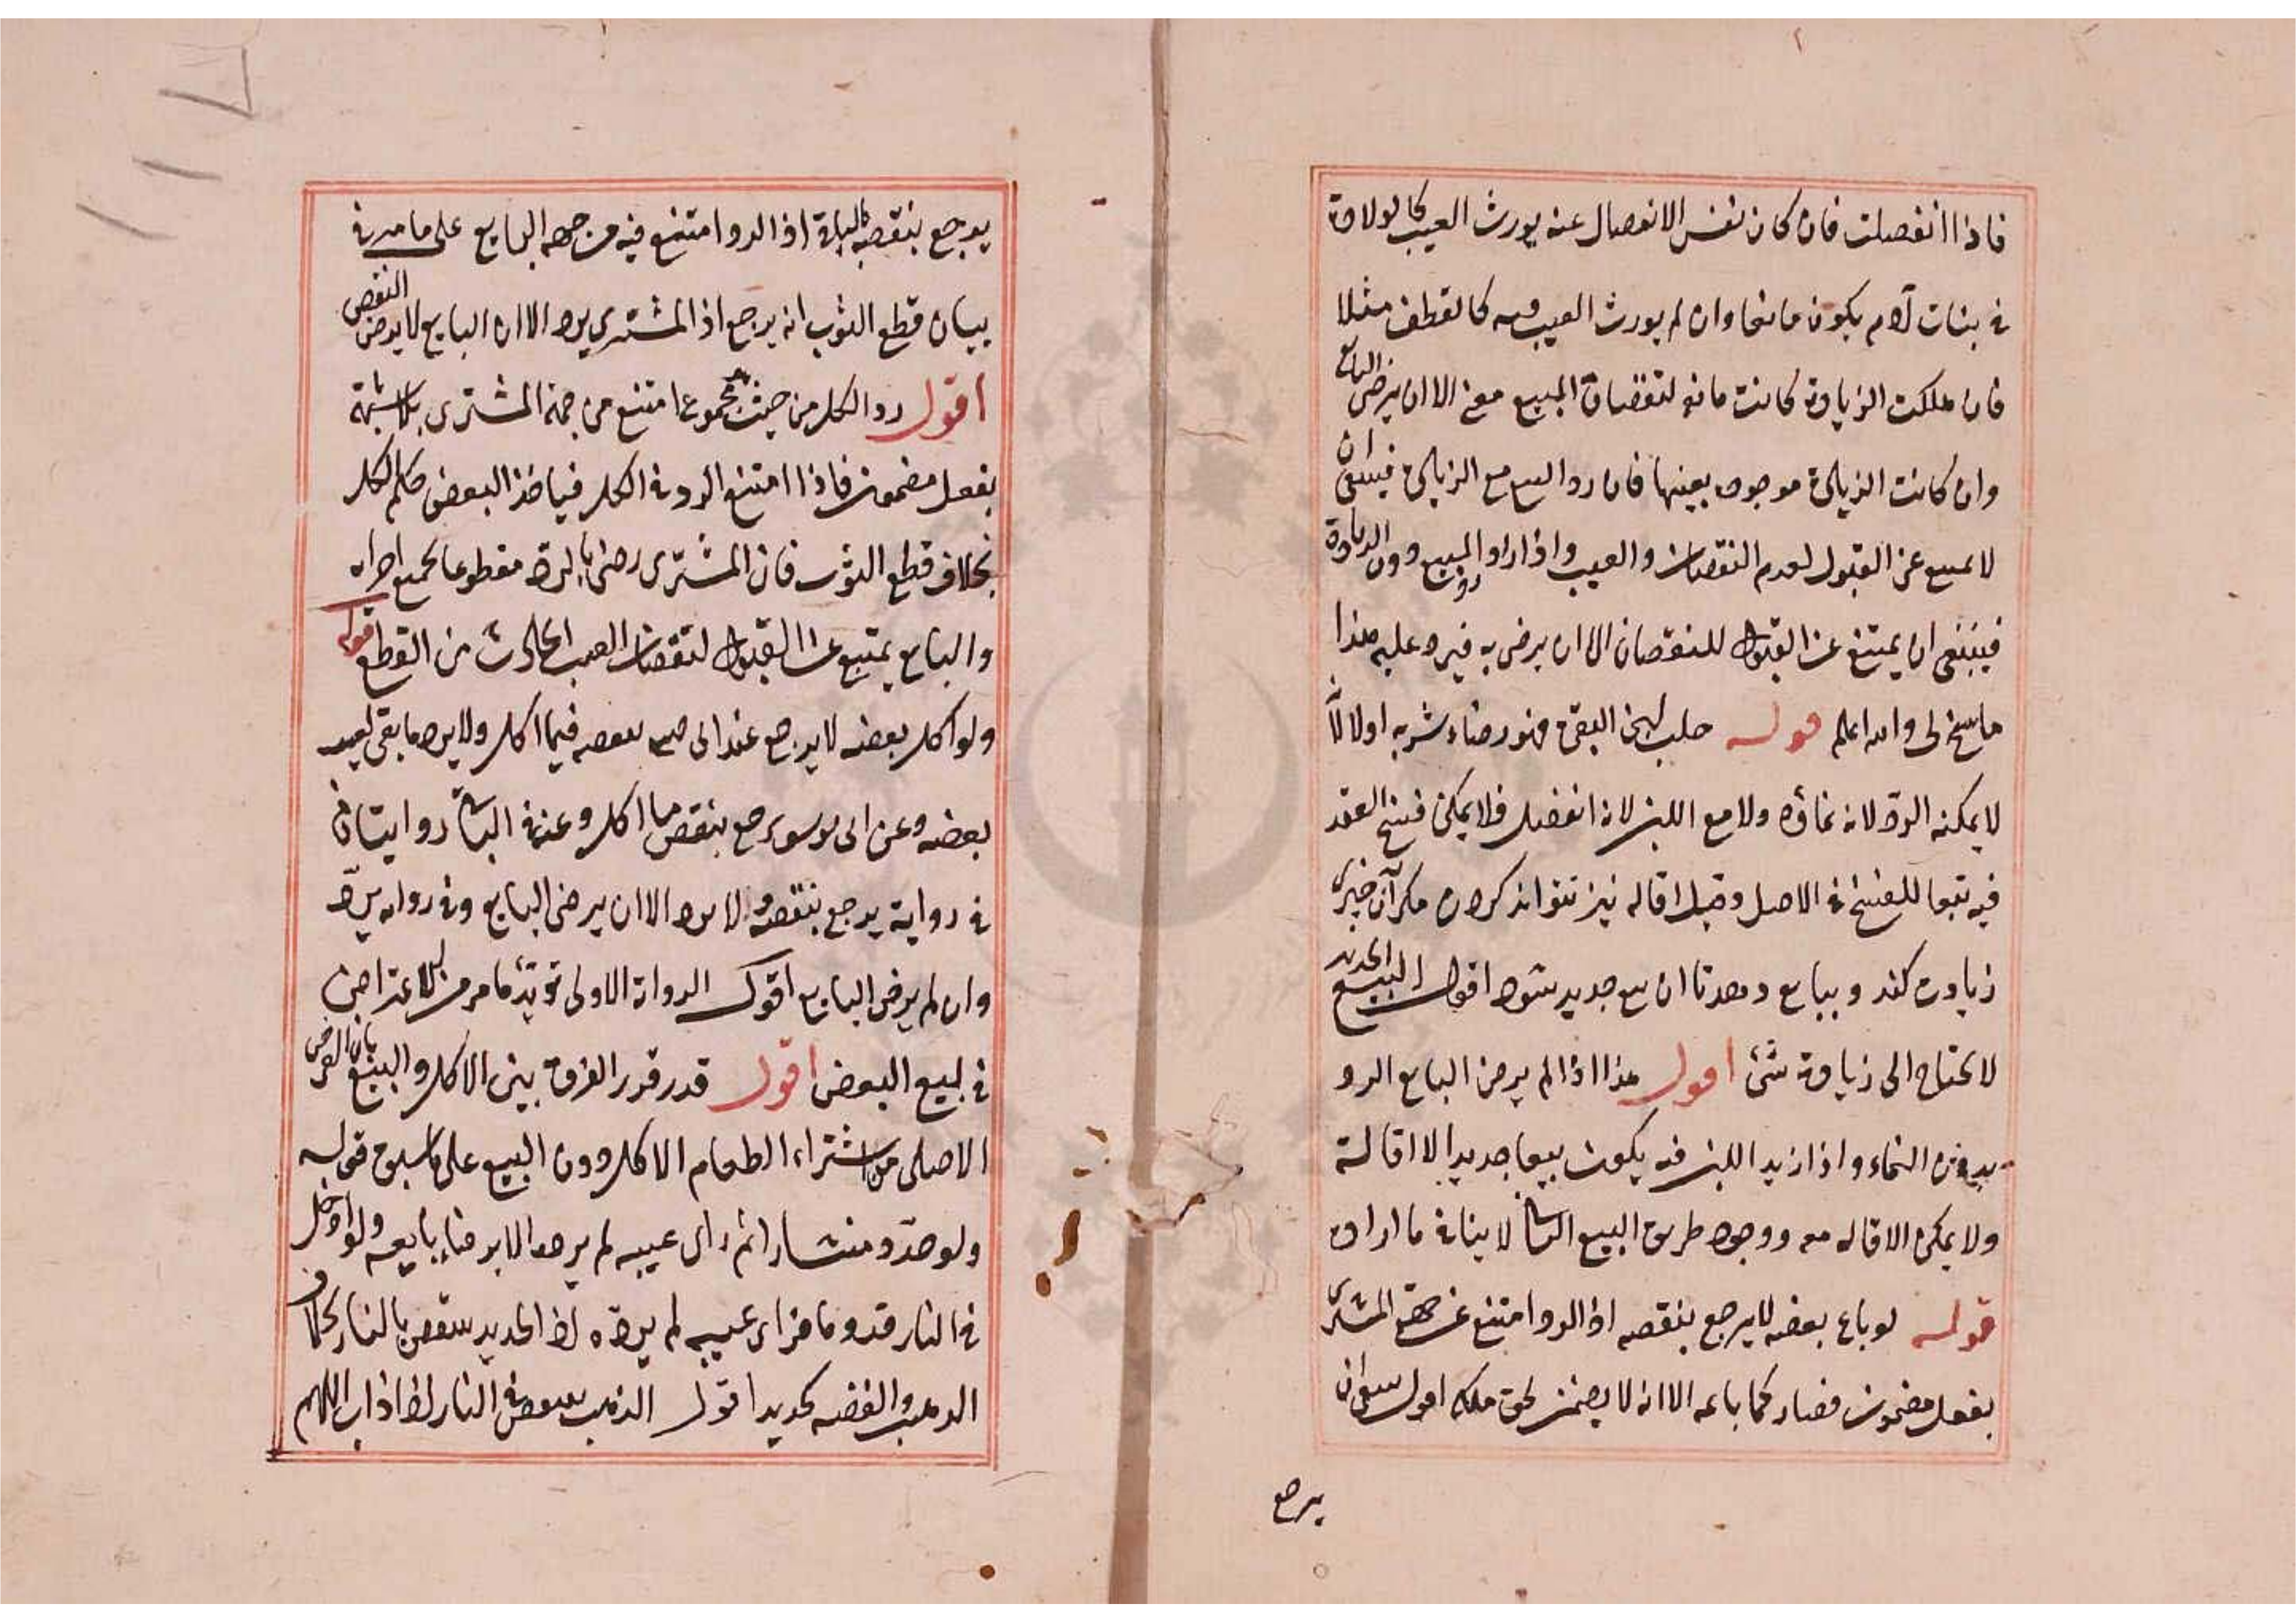 فاذا انفصلت فان كان نفس الانفصال عنه يورث العيب كالولادة
في بنات آدم يكون مانعا وان لم يورث العيب فيه كالقطف مثلا
فان هلكت الزيادة كانت مانعة لنقصان المبيع معنى الا ان يرضى البايع
وان كانت الزيادة موجودة بعينها فان رد المبيع مع الزيادة فينبغي ان
لا يمنع عن القبول لعدم النقصان والعيب واذا اراد رد المبيع دون الزيادة
فينبغي ان يمتنع عن القبول للنقصان الا ان يرضى به فيرد عليه هذا
ما سنح لي والله اعلم قوله حلب لبن البقرة فهو رضاء شربه اولا لأن
لا يمكنه الرد لانه نماؤه ولا مع اللبن لانه انفصل فلا يمكن فسخ العقد
فيه تبعا للفسخ في الاصل وقيل اقاله نيز نتواند كردن مكر آن چيزى
زيادت كند و ببايع دهد تا ان بيع جديد شود اقول البيع الجديد
لا يحتاج الى زيادة شئ اقول هذا اذا لم يرض البايع الرد
بدون النماء واذا ازيد اللبن فيه يكون بيعا جديدا لا اقالة
ولا يمكن الاقاله معه ووجود طريق البيع الثاني لا ينافي ما اراده
قوله لو باع بعضه لا يرجع بنقصه اذ الرد امتنع عن جهة المشتري
بفعل مضمون فصار كما باعه الا انه لا يضمن لحق ملكه اقول ينبغي ان
يرجع
يرجع بنقصه الباقي اذ الرد امتنع فيه من جهة البايع على ما مر في
بيان قطع الثوب انه يرجع اذ المشتري يرد الا ان البايع لا يرضى النقص
اقول رد الكل من حيث هو مجموع امتنع من جهة المشترى بلا شبهة
بفعل مضمون فاذا امتنع الرد في الكل فياخذ البعض حكم الكل
بخلاف قطع الثوب فان المشترى رضى بالرد مقطوعا بجميع اجزائه
والبايع يمتنع عن القبول لنقصان العيب الحادث من القطع قوله
ولو اكل بعضه لا يرجع عند ابي ح بنقصه فيما اكل ولا يرد ما بقي لعيب
بعضه وعن ابي يوسف يرجع بنقص ما اكل وعنه في الباقي روايتان
في رواية يرجع بنقصه ولا يرد الا ان يرضى البايع وفي رواية يرد
وان لم يرض البايع اقول الرواية الاولى تؤيد ما مر من الاعتراض
في بيع البعض اقول قد قدر الفرق بين الاكل والبيع بان الغرض
الاصلى من اشتراء الطعام الاكل دون البيع على ما سبق قوله
ولو حدد منشارا ثم راى عيبه لم يرده الا برضاء بايعه ولو ادخل
في النار قدوما فراى عيبه لم يرده اذ الحديد ينقص بالنار بخلاف
الذهب والفضه كحديد اقول الذهب ينقص في النار اذا ذاب اللهم